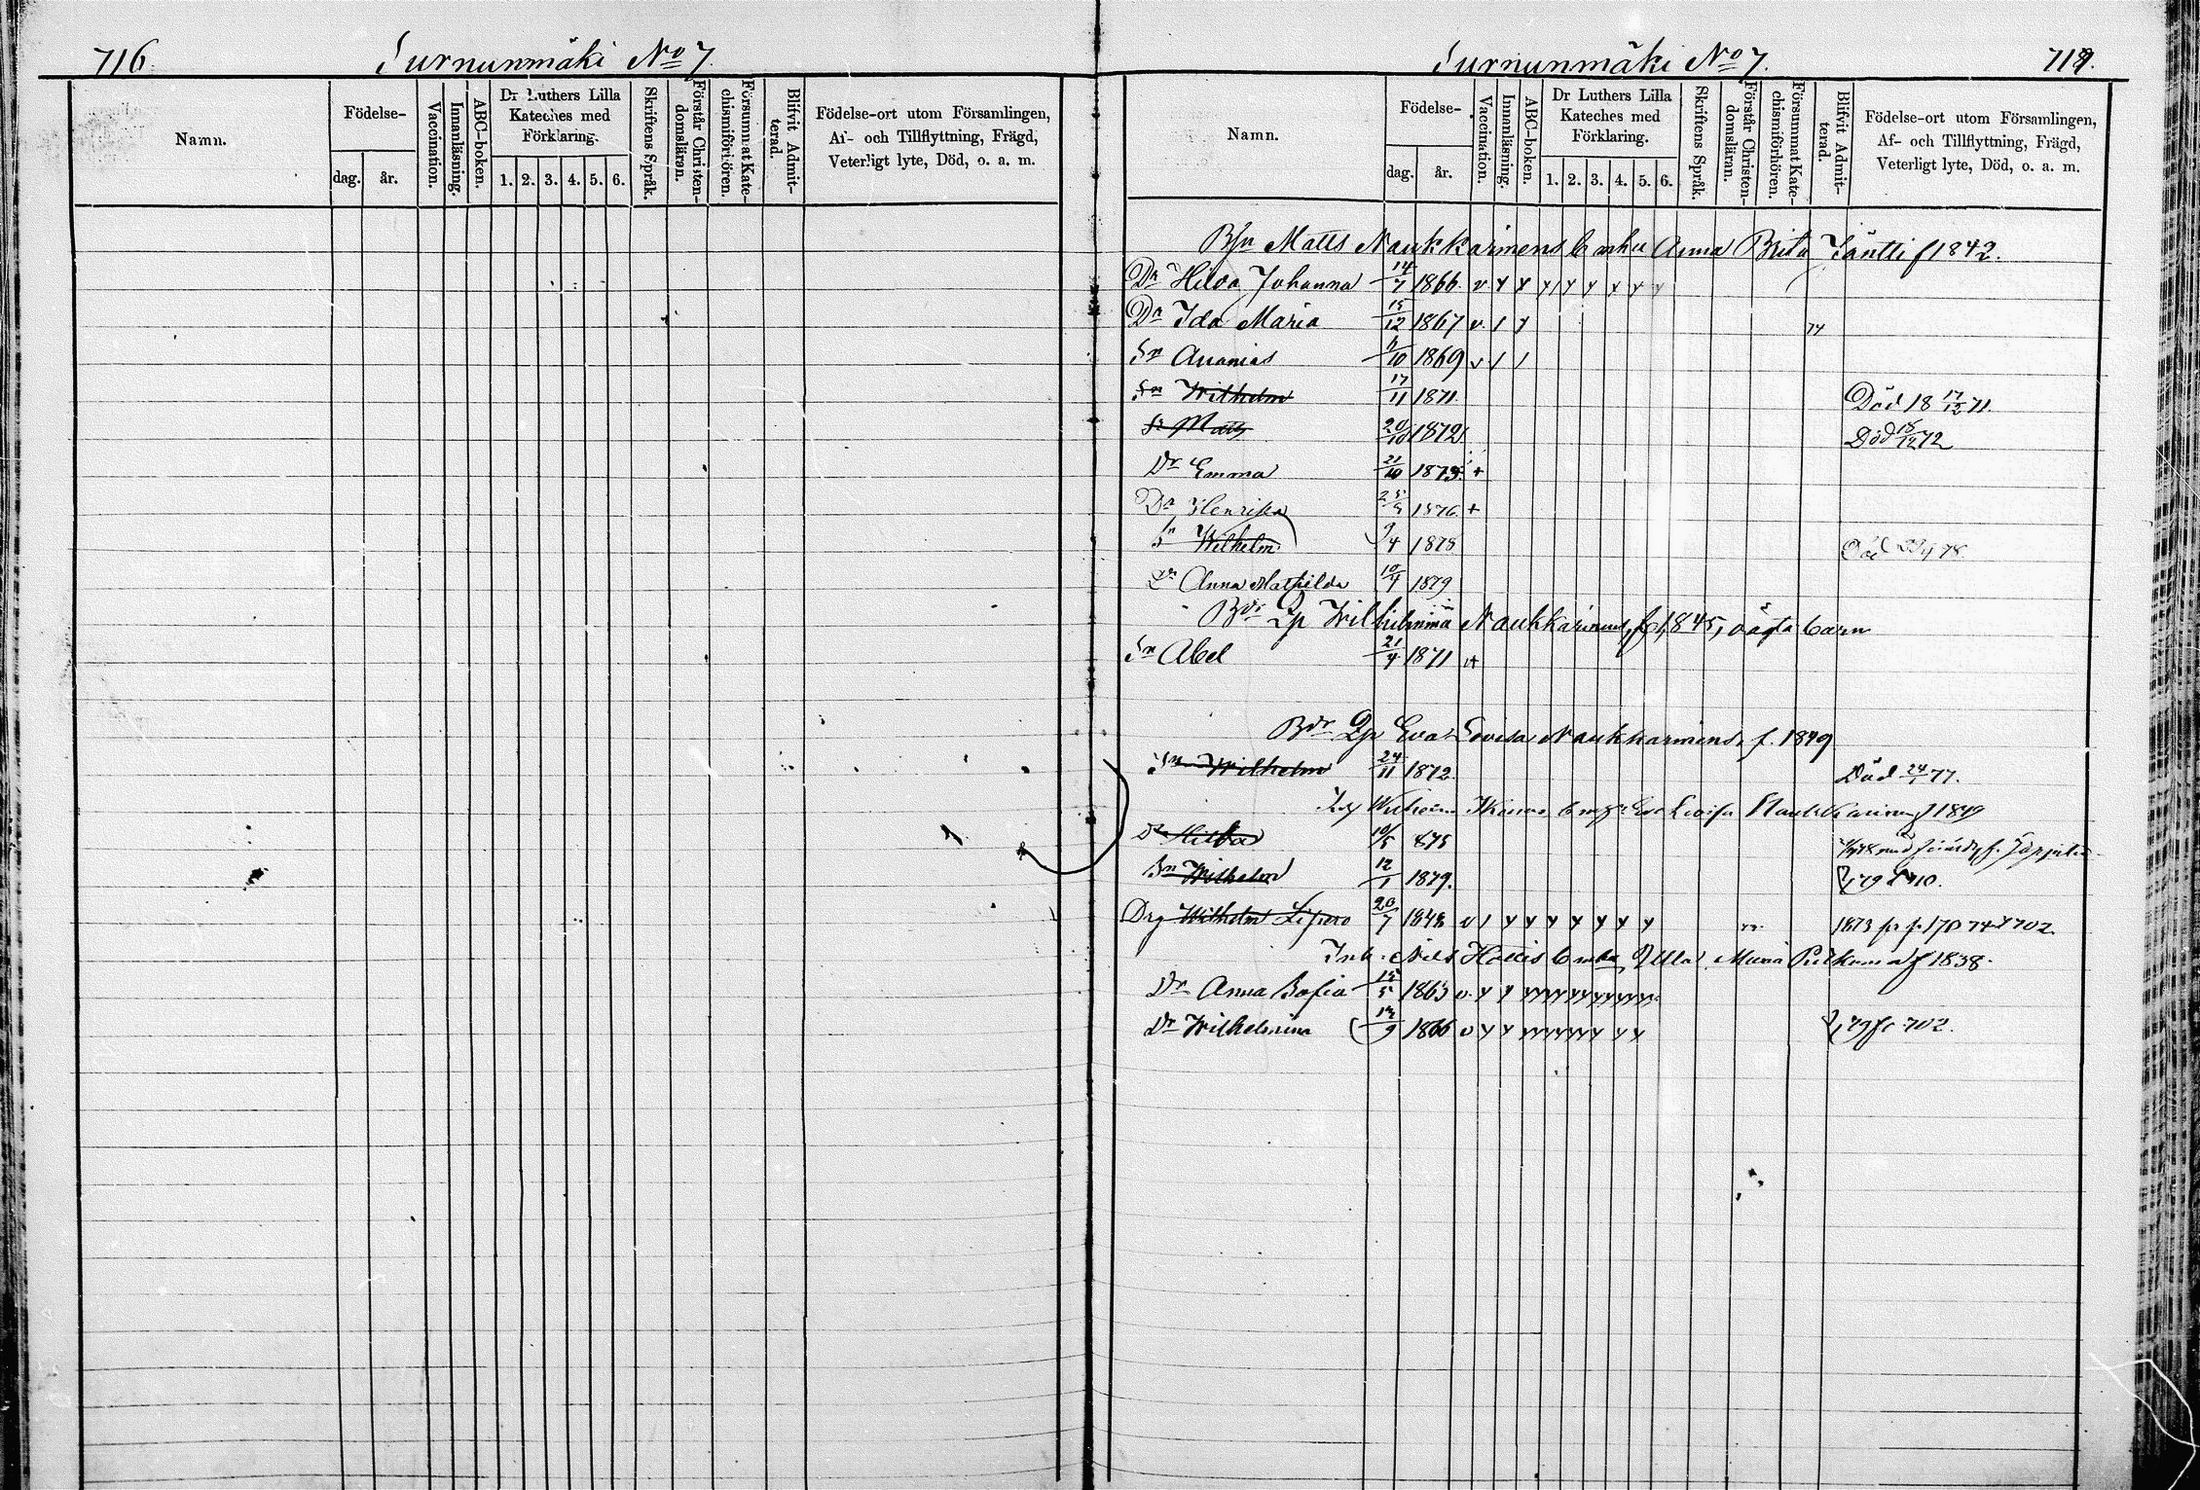 716. Surnunmäki No 7.
Namn.
Födelse-
dag. år.
Vaccination.
Innanläsning.
ABC-boken.
Dr Luthers Lilla
Kateches med
Förklaring.
1. 2. 3. 4. 5. 6.
Skriftens Språk.
Förstår Christen-
domsläran.
Försummat Kate-
chismiförhören.
Blifvit Admit-
terad.
Födelse-ort utom Församlingen,
Af- och Tillflyttning, Frägd,
Veterligt lyte, Död, o. a. m.
Surnunmäki No 7. 717.
Namn.
Födelse-
dag. år.
Vaccination.
Innanläsning.
ABC-boken.
Dr Luthers Lilla
Kateches med
Förklaring.
1. 2. 3. 4. 5. 6.
Skriftens Språk.
Förstår Christen-
domsläran.
Försummat Kate-
chismiförhören.
Blifvit Admit-
terad.
Födelse-ort utom Församlingen,
Af- och Tillflyttning, Frägd,
Veterligt lyte, Död, o. a. m.
Matts Naukkarinens Anna Brita Jäntti f 1842.
Dr Hilda Johanna 14/7 1866. v y y y y y y y y
Dr Ida Maria 15/12 1867 v 1 y 74
Sn Ananias 11/10 1869 v 1 1
Sn Wilhelm 17/11 1871. Död 18 17/12 71.
Sn Matts 20/10 1872 Död 15/12 72
Dr Emma 21/10 1873 +
Dr Henrika 1876 +
Sn Wilhelm 9/4 1878 Död 78.
Dr Anna Mathilda 10/4 1879
Bdr Qp Wilhelmina Naukkarinens, f. 1845, oägta barn
Sn Abel 21/4 1871 v+
Bdr Qp Eva Lovisa Naukkarinens, f. 1849
Sn Wilhelm 24/11 1872. Död 24/1 77.
Wilhelm Eva Lovisa Naukkarinen f 1849
Dr Hilda 10/5 875
Sn Wilhelm 12/1 1879. 79 710.
Drg Wilhelm Lipero 20/7 1848 v 1 y y y y y y y 1873 fr p 170 74 702
Inh. Nils Ulla Maria f 1838.
Dr Anna Sofia 15/5 1863 v. y y yyyyyyyyyy
Dr Wilhelmina 13/9 1866 v y y yyyyyy y y 79 fr 702.